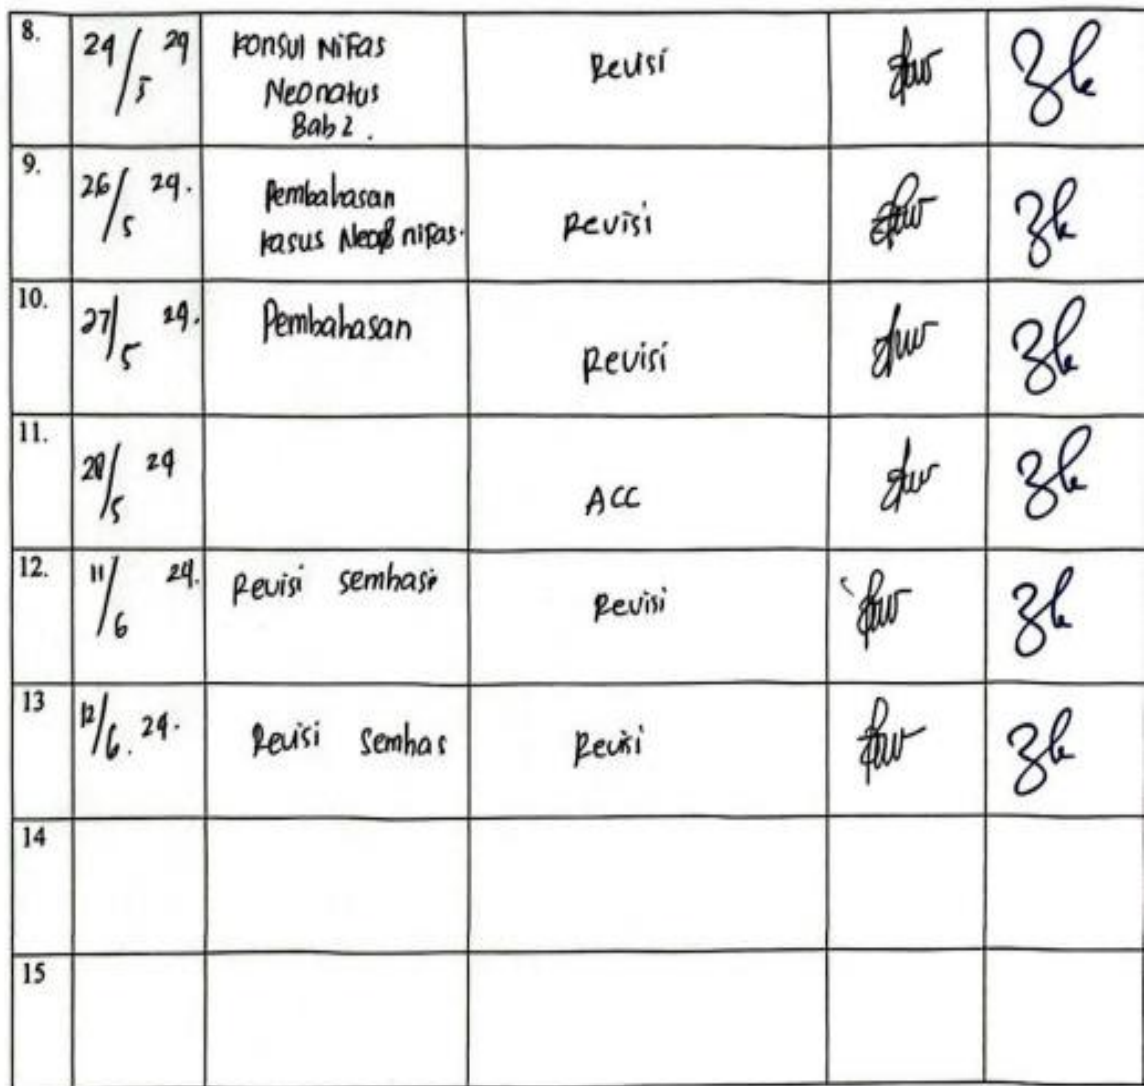 8.
24/5 24
Konsul Nifas
Neonatus
Bab 2.
Revisi
9.
26/5 24.
Pembahasan
kasus nifas.
Revisi
10.
27/5 24.
Pembahasan
Revisi
11.
28/5 24
ACC
12.
11/6 24.
Revisi semhas
Revisi
13
12/6. 24.
Revisi Semhas
Revisi
14
15